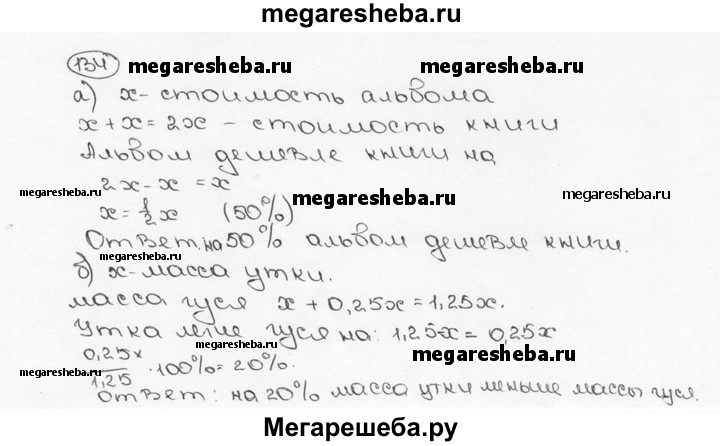 megaresheba.ru
134 megaresheba.ru megaresheba.ru
а) x - стоимость альбома
x + x = 2x - стоимость книги
Альбом дешевле книги на
2x - x = x
megaresheba.ru megaresheba.ru megaresheba.ru
x = 1/2 x (50%)
Ответ. на 50% альбом дешевле книги.
megaresheba.ru
б) x - масса утки.
масса гуся x + 0,25x = 1,25x.
Утка легче гуся на: 1,25x = 0,25x
0,25x/1,25 · 100% = 20%. megaresheba.ru
Ответ: на 20% масса утки меньше массы гуся.
Мегарешеба.ру